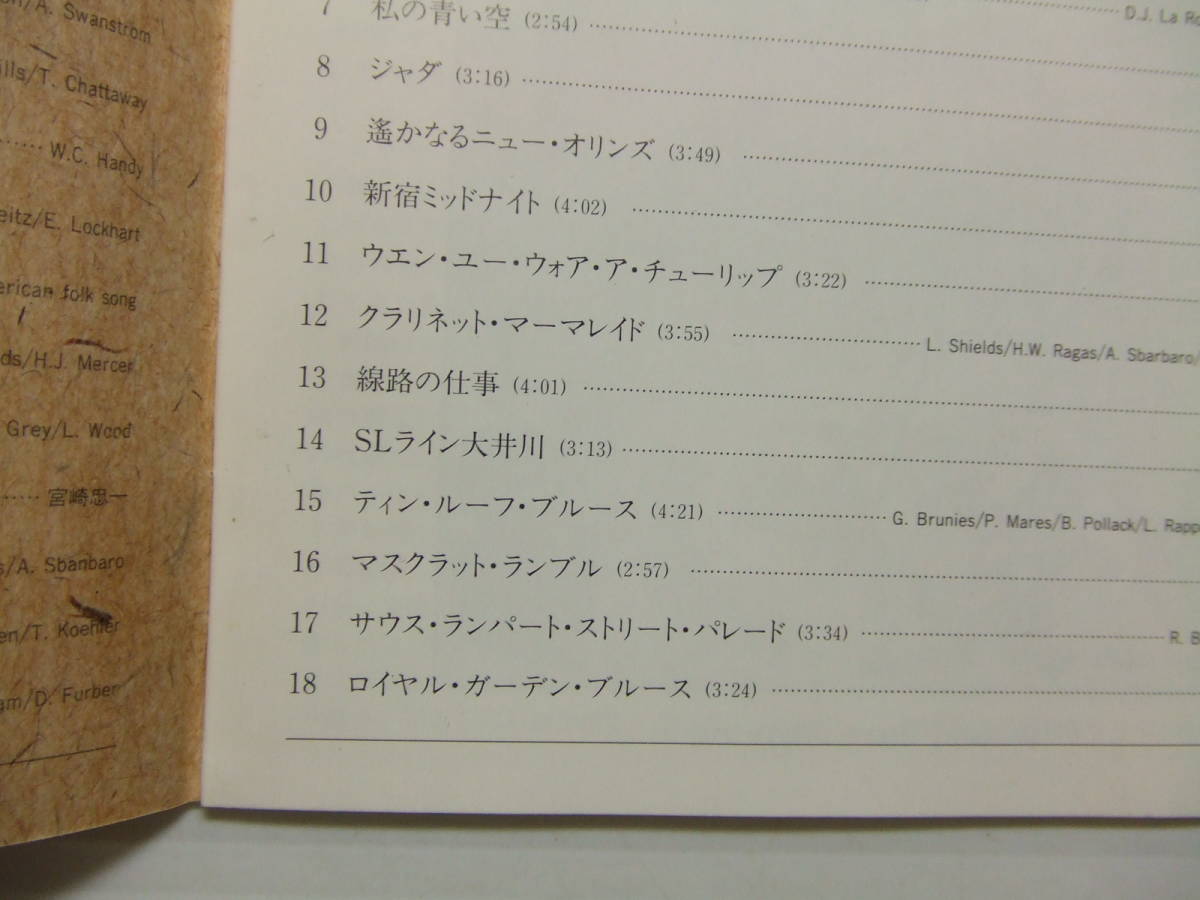 A. Swanstrom
T. Chattaway
W.C. Handy
E. Lockhart
folk song
H.J. Mercer
Grey/L. Wood
宮崎忠一
A. Sbanbaro
T. Koehler
D. Furber
7 私の青い空 (2:54) D.J. La
8 ジャダ (3:16)
9 遙かなるニュー・オリンズ (3:49)
10 新宿ミッドナイト (4:02)
11 ウエン・ユー・ウォア・ア・チューリップ (3:22)
12 クラリネット・マーマレイド (3:55) L. Shields/H.W. Ragas/A. Sbarbaro/
13 線路の仕事 (4:01)
14 SLライン大井川 (3:13)
15 ティン・ルーフ・ブルース (4:21) G. Brunies/P. Mares/B. Pollack/L. Rapp
16 マスクラット・ランブル (2:57)
17 サウス・ランパート・ストリート・パレード (3:34) R.
18 ロイヤル・ガーデン・ブルース (3:24)